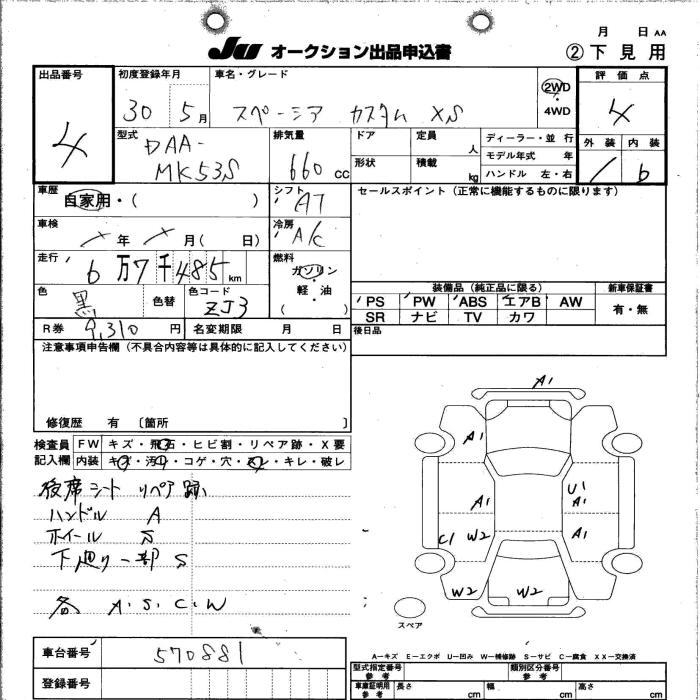 月 日 AA
JU オークション出品申込書 ② 下見用
出品番号 初度登録年月 車名・グレード 評価点
4 30 5月 スペーシア カスタム XS 2WD 4WD 4
型式 排気量 ドア 定員 人 ディーラー・並行 外装 内装
DAA-MK53S 660cc 形状 積載 kg モデル年式 年
ハンドル 左・右 b
車歴 シフト セールスポイント(正常に機能するものに限ります)
自家用・( ) AT
車検 冷房
年 月( 日) A/C
走行 燃料
6万7千485km ガソリン
色 黒 色替 色コード ZJ3 軽・油
( )
装備品(純正品に限る) 新車保証書
PS PW ABS エアB AW 有・無
SR ナビ TV カワ
R券 9,310円 名変期限 月 日 後日品
注意事項申告欄(不具合内容等は具体的に記入してください)
修復歴 有 〔箇所 〕
検査員 FW キズ・飛石・ヒビ割・リペア跡・X要
記入欄 内装 キズ・汚れ・コゲ・穴・スレ・キレ・破レ
後席シート リペア跡
ハンドル A
ホイール
下廻り一部 S
各 A.S.C.W
A1
A1
A1 U1 A1
C1 W2 A1
W2 W2
スペア
A―キズ E―エクボ U―凹み W―補修跡 S―サビ C―腐食 XX―交換済
車台番号 570881
登録番号
型式指定番号 参考 類別区分番号 参考
車庫証明用 参考 長さ cm 幅 cm 高さ cm